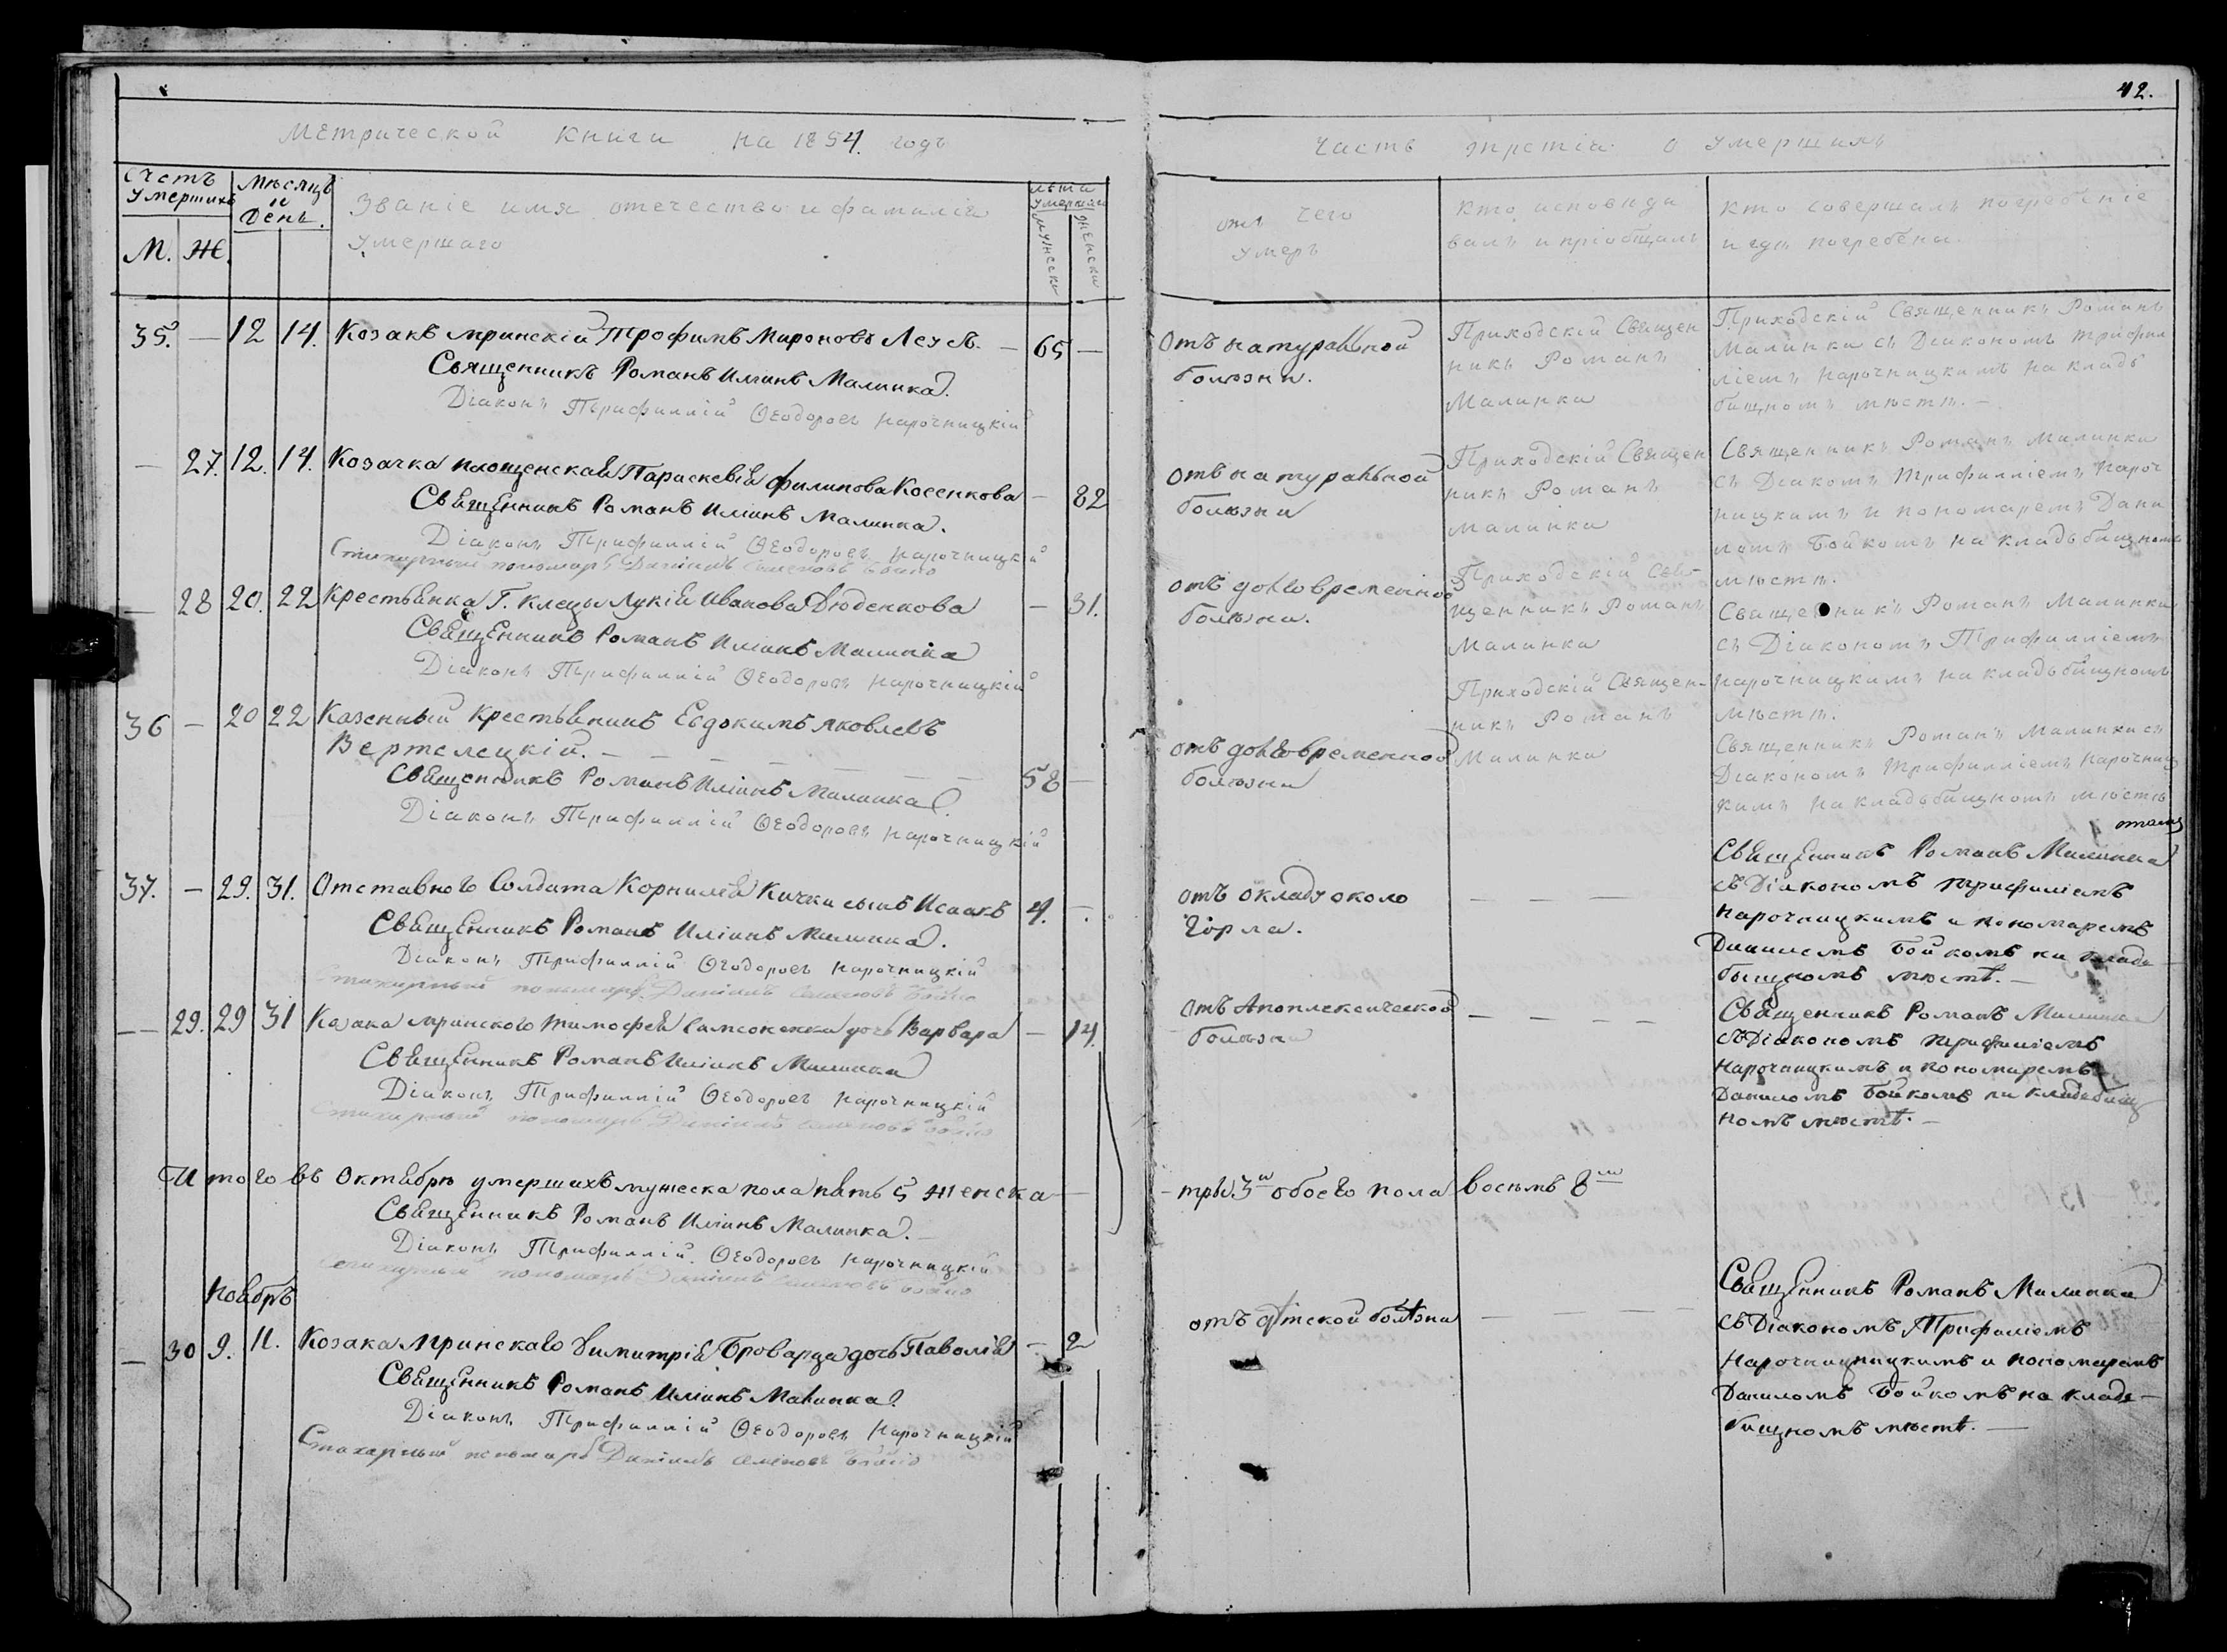 42.
Метрической книги на 1854 годъ
Часть третія о умершихъ
Счетъ умершихъ
М. Ж.
Мѣсяцъ и День.
Званіе имя отечество и фамилія
умершаго
Лѣта умершаго
мужеска
женска
отъ чего
умеръ
Кто исповѣды
валъ и пріобщалъ
Кто совершалъ погребеніе
и гдѣ погребены.
35. — 12 14. Козакъ мринскій Трофимъ Мироновъ — 65 —
Священникъ Романъ Иліинъ Малинка.
Діаконъ Трифиллій Ѳеодоровъ Нарочницкій
отъ натуральной
болѣзни.
Приходскій Священ
никъ Романъ
Малинка
Приходскій Священникъ Романъ
Малинка съ Діакономъ Трифил
ліемъ Нарочницкимъ на кладъ
бищномъ мѣстѣ. —
— 27. 12. 14. Козачка Параскевія Филипова Косенкова — 82
Священникъ Романъ Иліинъ Малинка.
Діаконъ Трифиллій Ѳеодоровъ Нарочницкій
Стихарный пономарь Даніилъ Семеновъ Бойко
отъ натуральной
болѣзни
Приходскій Священ
никъ Романъ
Малинка
Священникъ Романъ Малинка
съ Діакомъ Трифилліемъ Нароч
ницкимъ и пономаремъ Дани
ломъ Бойкомъ на кладьбищномъ
мѣстѣ.
— 28 20. 22 Крестьянка Г. Лукія Иванова Дюденкова — 31.
Священникъ Романъ Иліинъ Малинка
Діаконъ Трифиллій Ѳеодоровъ Нарочницкій
отъ долговременной
болѣзни.
Приходскій Свя-
щенникъ Романъ
Малинка
Священникъ Романъ Малинка
съ Діакономъ Трифилліемъ
Нарочницкимъ на кладьбищномъ
мѣстѣ.
36 — 20 22 Казенный крестьянинъ Евдокимъ Яковлевъ
Вертелецкій. — — — — — 58 —
Священникъ Романъ Иліинъ Малинка
Діаконъ Трифиллій Ѳеодоровъ Нарочницкій
отъ долговременной
болѣзни
Приходскій Священ-
никъ Романъ
Малинка
Священникъ Романъ Малинка съ
Діакономъ Трифилліемъ Нарочниц
кимъ на кладьбищномъ мѣстѣ
37. — 29. 31. Отставного Солдата Корнилія Кички сынъ Исаакъ 4. —.
Священникъ Романъ Иліинъ Малинка.
Діаконъ Трифиллій Ѳеодоровъ Нарочницкій
Стихарный пономарь Даніилъ Семеновъ Бойко
отъ окладу около
горла.
— — —
Священникъ Романъ Малинка
съ Діакономъ Трифиліемъ
Нарочницкимъ и пономаремъ
Даниломъ Бойкомъ на кладъ
бищномъ мѣстѣ. —
— — 29. 29 31 Козака мринского Тимофея Самсоненка дочь Варвара — 14.
Священникъ Романъ Иліинъ Малинка
Діаконъ Трифиллій Ѳеодоровъ Нарочницкій
Стихарный пономарь Даніилъ Семеновъ Бойко
отъ Апоплексической
болѣзни
— — — —
Священникъ Романъ Малинка
съ Діакономъ Трифиліемъ
Нарочницкимъ и пономаремъ
Даниломъ Бойкомъ на кладьбищ
номъ мѣстѣ. —
Итого въ Октябрѣ умершихъ мужеска пола пять 5 женска — три 3и обоего пола восемь 8мь
Священникъ Романъ Иліинъ Малинка. —
Діаконъ Трифиллій Ѳеодоровъ Нарочницкій
Стихарный пономарь Даніилъ Семеновъ Бойко
Ноябрь
— 30 9. 11. Козака Мринскаго Димитрія Броварца дочь — 2
Священникъ Романъ Иліинъ Малинка
Діаконъ Трифиллій Ѳеодоровъ Нарочницкій
Стихарный пономарь Даніилъ Семеновъ Бойко
отъ дѣтской болѣзни
— — — —
Священникъ Романъ Малинка
съ Діакономъ Трифиліемъ
Нарочницницкимъ и пономаремъ
Даниломъ Бойкомъ на кладь—
бищномъ мѣстѣ. —